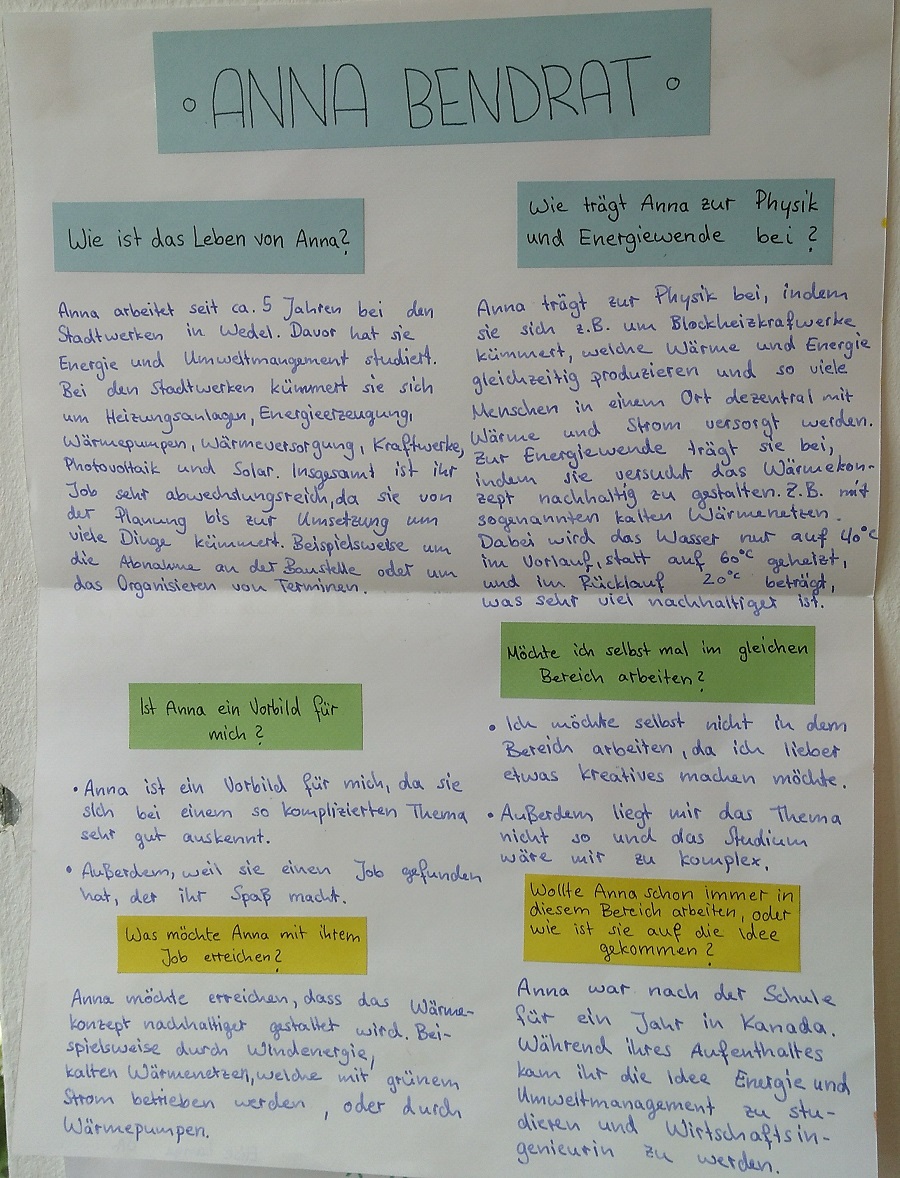 • ANNA BENDRAT •
Wie ist das Leben von Anna?
Anna arbeitet seit ca. 5 Jahren bei den
Stadtwerken in Wedel. Davor hat sie
Energie und Umweltmangement studiert.
Bei den Stadtwerken kümmert sie sich
um Heizungsanlagen, Energieerzeugung,
Wärmepumpen, Wärmeversorgung, Kraftwerke,
Photovoltaik und Solar. Insgesamt ist ihr
Job sehr abwechslungsreich, da sie von
der Planung bis zur Umsetzung um
viele Dinge kümmert. Beispielsweise um
die Abnahme an der Baustelle oder um
das Organisieren von Terminen.
Wie trägt Anna zur Physik
und Energiewende bei?
Anna trägt zur Physik bei, indem
sie sich z.B. um Blockheizkrafwerke
kümmert, welche Wärme und Energie
gleichzeitig produzieren und so viele
Menschen in einem Ort dezentral mit
Wärme und Strom versorgt werden.
Zur Energiewende trägt sie bei,
indem sie versucht das Wärmekon-
zept nachhaltig zu gestalten. Z.B. mit
sogenannten kalten Wärmenetzen.
Dabei wird das Wasser nur auf 40°C
im Vorlauf, statt auf 60°C geheizt,
und im Rücklauf 20°C beträgt,
was sehr viel nachhaltiger ist.
Ist Anna ein Vorbild für
mich?
• Anna ist ein Vorbild für mich, da sie
sich bei einem so komplizierten Thema
sehr gut auskennt.
• Außerdem, weil sie einen Job gefunden
hat, der ihr Spaß macht.
Möchte ich selbst mal im gleichen
Bereich arbeiten?
• Ich möchte selbst nicht in dem
Bereich arbeiten, da ich lieber
etwas kreatives machen möchte.
• Außerdem liegt mir das Thema
nicht so und das Studium
wäre mir zu komplex.
Was möchte Anna mit ihrem
Job erreichen?
Anna möchte erreichen, dass das Wärme-
konzept nachhaltiger gestaltet wird. Bei-
spielsweise durch Windenergie,
kalten Wärmenetzen, welche mit grünem
Strom betrieben werden, oder durch
Wärmepumpen.
Wollte Anna schon immer in
diesem Bereich arbeiten, oder
wie ist sie auf die Idee
gekommen?
Anna war nach der Schule
für ein Jahr in Kanada.
Während ihres Aufenthaltes
kam ihr die Idee Energie und
Umweltmanagement zu stu-
dieren und Wirtschaftsin-
genieurin zu werden.